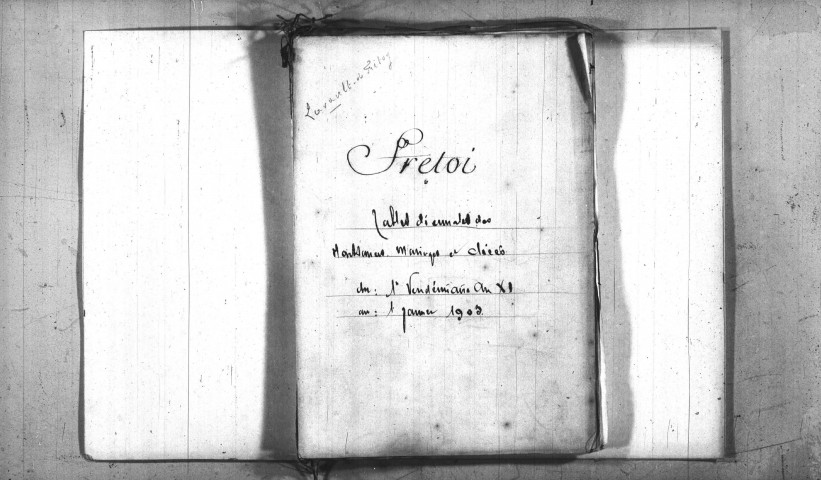 Larault-et-Prétoy
Prétoi
Tables décennales des
Naissances Mariages et décès
du : 1er Vendémiaire An XI
au : 1er janvier 1903